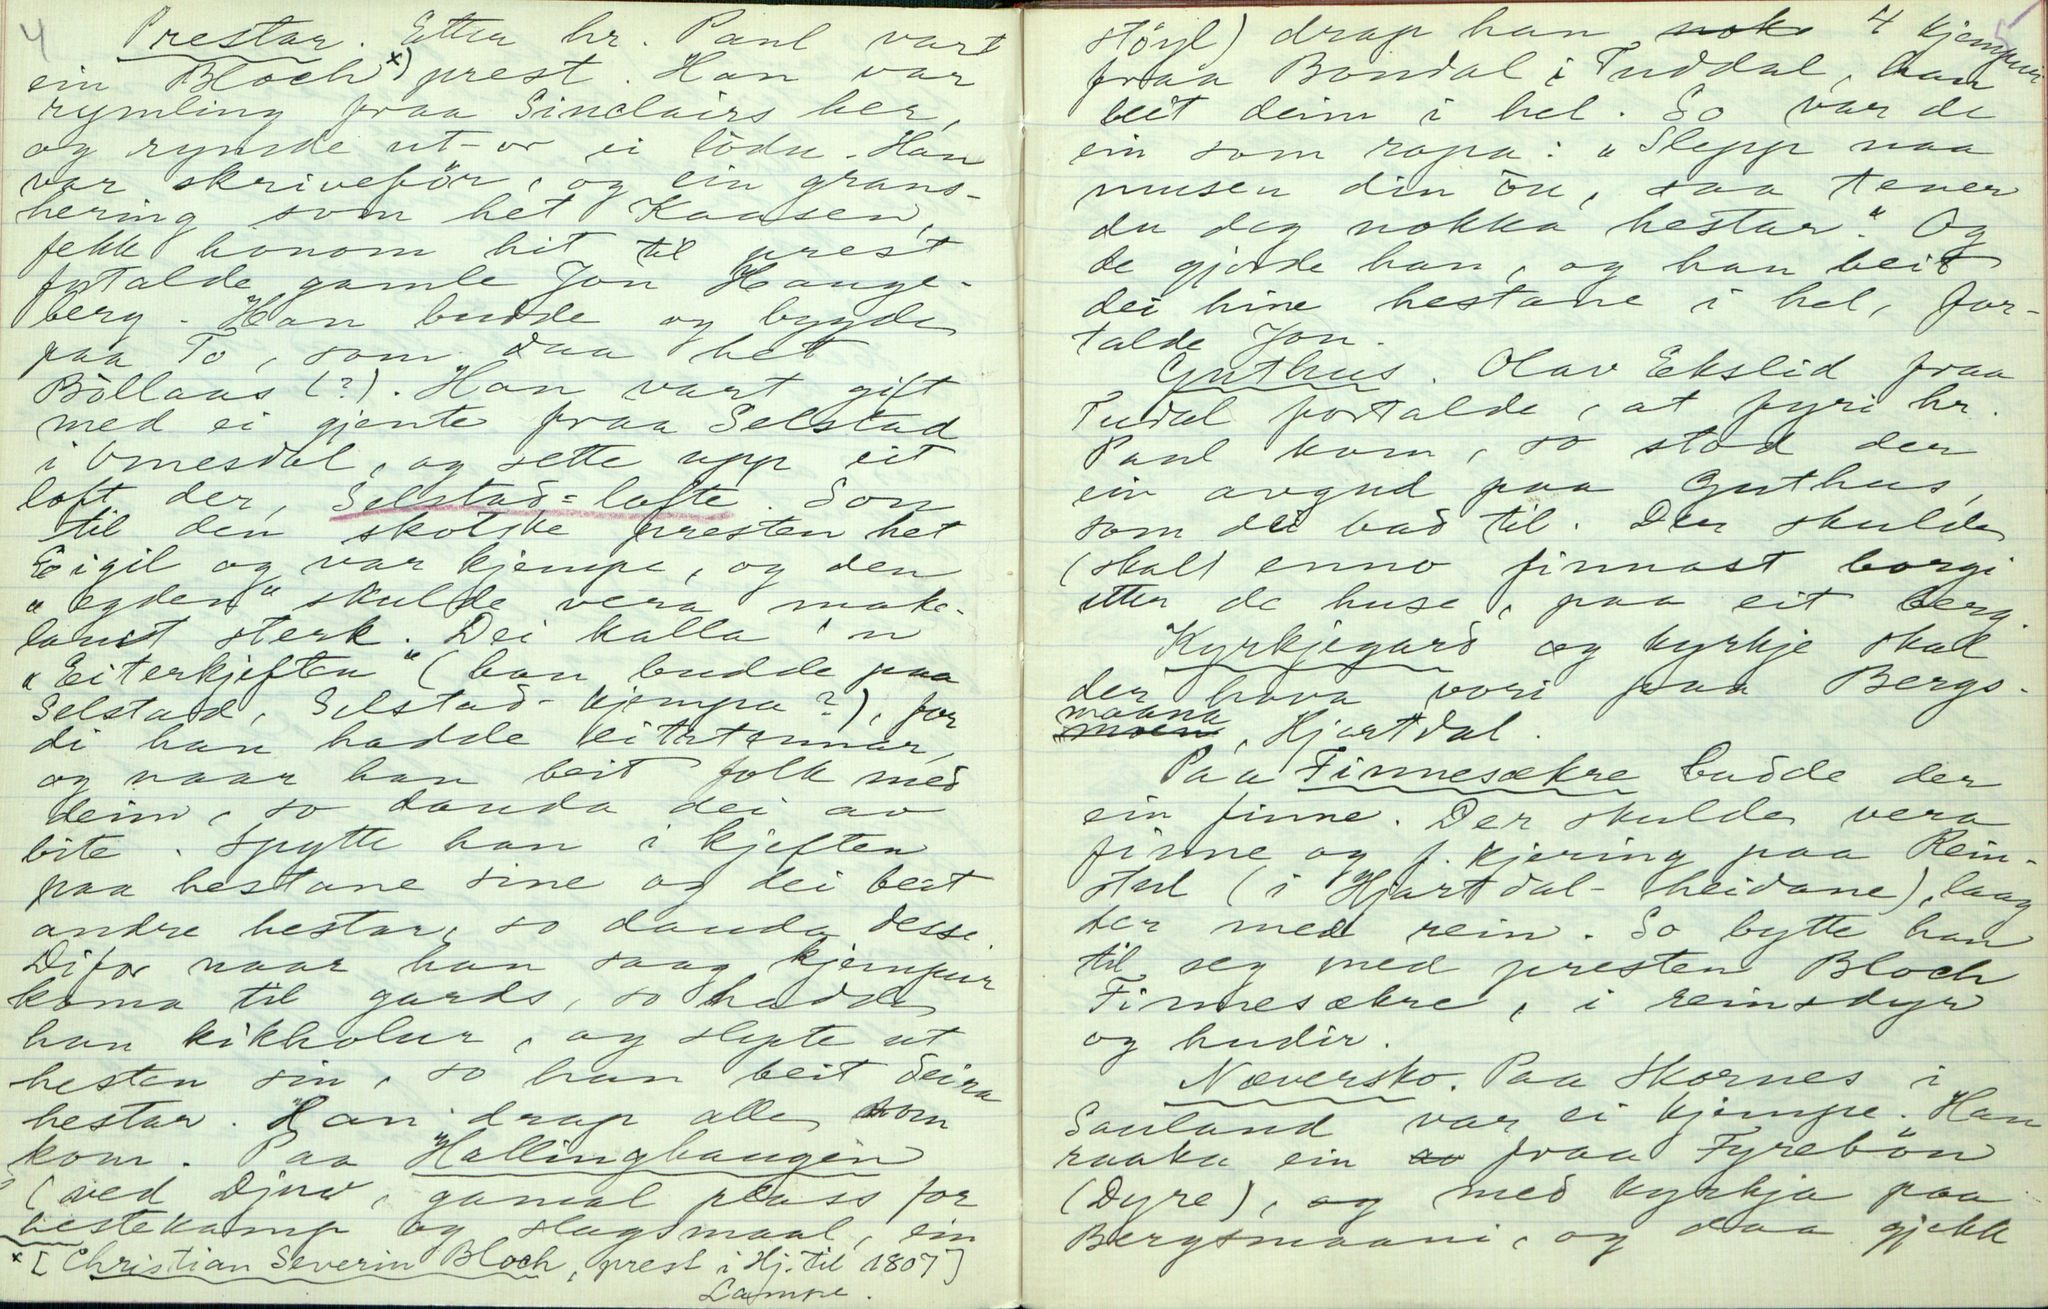 4
Prestar. Etter hr. Paul vart
ein Bloch x) prest. Han var
rymling fraa Sinclairs her,
og rymde ut-or ei lödu. Han
var skriveför, og ein grans-
hering som het Kaasen,
fekk honom hit til prest
fortalde gamle Jon Hauge-
berg. Han budde og bygde
paa To, som daa het
Böllaas (?). Han vart gift
med ei gjente fraa Selstad
i Omesdal, og sette upp eit
loft der, Selstad-lofte. Son
til den skotske presten het
Eigil og var kjempe, og den
"egden" skulde vera make-
laust sterk. Dei kalla 'n
"Eiterkjeften" (han budde paa
Selstad, Selstad-kjempa?), for
di han hadde eitertennar,
og naar han beit folk med
deim, so dauda dei av
bite. Spytte han i kjeften
paa hestane sine og dei beit
andre hestar, so dauda desse.
Difor naar han saag kjempur
koma til gards, so hadde
han kikholur, og slepte ut
hesten sin, so han beit deira
hestar. Han drap alle som
kom. Paa Hallinghaugen
(ved Djuv, gamal plass for
hestekamp og slagsmaal, ein
x [Christian Severin Bloch, prest i Hj. til 1807]
Lampe.
5
stöyl) drap han nok 4 kjempur
fraa Bondal i Tuddal, han
beit deim i hel. So var de
ein som ropa: "Slepp naa
musen din ou, saa tener
du deg nokka hestar." Og
de gjorde han, og han beit
dei hine hestane i hel, for-
talde Jon.
Guthus. Olav Ekslid fraa
Tudal fortalde, at fyri hr.
Paul kom, so stod der
ein avgud paa Guthus,
som dei bad til. Der skulde
(skal) enno finnast borgi
etter de huse, paa eit berg.
Kyrkjegard og kyrkje skal
der hava vori paa Bergs-
maana
moen, Hjartdal.
Paa Finnesækre budde der
ein finne. Der skulde vera
finne og f.kjering paa Rein-
stul (i Hjartdal-heidane), laag
der med rein. So bytte han
til seg med presten Bloch
Finnesækre, i reinsdyr
og hudir.
Næversko. Paa Skornes i
Sauland var ei kjempe. Han
raaka ein so fraa Fyrebön
(Dyre), og med kyrkja paa
Bergsmaani, og daa gjekk